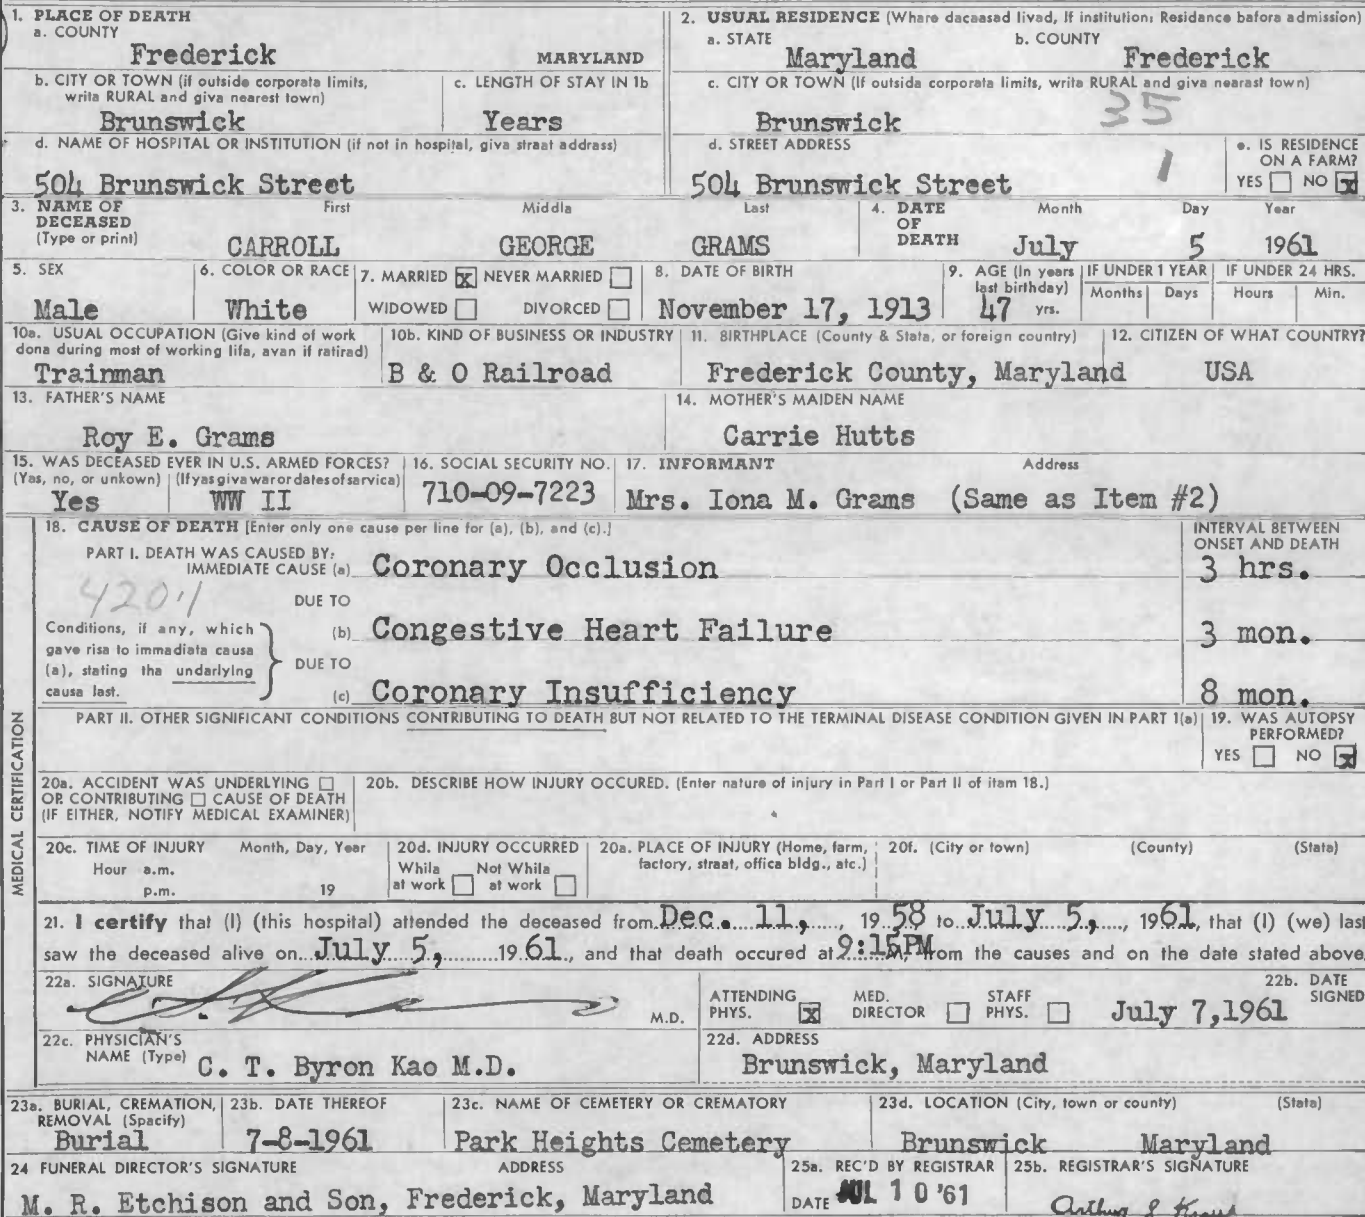 1. PLACE OF DEATH
a. COUNTY
Frederick MARYLAND
2. USUAL RESIDENCE (Where deceased lived, If institution: Residence before admission)
a. STATE b. COUNTY
Maryland Frederick
b. CITY OR TOWN (if outside corporate limits, write RURAL and give nearest town)
Brunswick
c. LENGTH OF STAY IN 1b
Years
c. CITY OR TOWN (If outside corporate limits, write RURAL and give nearest town)
Brunswick 35
d. NAME OF HOSPITAL OR INSTITUTION (if not in hospital, give street address)
504 Brunswick Street
d. STREET ADDRESS
504 Brunswick Street 1
e. IS RESIDENCE ON A FARM?
YES NO X
3. NAME OF DECEASED (Type or print)
First Middle Last
CARROLL GEORGE GRAMS
4. DATE OF DEATH
Month Day Year
July 5 1961
5. SEX
Male
6. COLOR OR RACE
White
7. MARRIED X NEVER MARRIED
WIDOWED DIVORCED
8. DATE OF BIRTH
November 17, 1913
9. AGE (In years last birthday)
47 yrs.
IF UNDER 1 YEAR
Months Days
IF UNDER 24 HRS.
Hours Min.
10a. USUAL OCCUPATION (Give kind of work done during most of working life, even if retired)
Trainman
10b. KIND OF BUSINESS OR INDUSTRY
B & O Railroad
11. BIRTHPLACE (County & State, or foreign country)
Frederick County, Maryland
12. CITIZEN OF WHAT COUNTRY?
USA
13. FATHER'S NAME
Roy E. Grams
14. MOTHER'S MAIDEN NAME
Carrie Hutts
15. WAS DECEASED EVER IN U.S. ARMED FORCES?
(Yes, no, or unkown) (If yes give war or dates of service)
Yes WW II
16. SOCIAL SECURITY NO.
710-09-7223
17. INFORMANT Address
Mrs. Iona M. Grams (Same as Item #2)
MEDICAL CERTIFICATION
18. CAUSE OF DEATH [Enter only one cause per line for (a), (b), and (c).]
INTERVAL BETWEEN ONSET AND DEATH
PART I. DEATH WAS CAUSED BY:
IMMEDIATE CAUSE (a) Coronary Occlusion 3 hrs.
420.1
DUE TO
(b) Congestive Heart Failure 3 mon.
Conditions, if any, which gave rise to immediate cause (a), stating the underlying cause last.
DUE TO
(c) Coronary Insufficiency 8 mon.
PART II. OTHER SIGNIFICANT CONDITIONS CONTRIBUTING TO DEATH BUT NOT RELATED TO THE TERMINAL DISEASE CONDITION GIVEN IN PART 1(a)
19. WAS AUTOPSY PERFORMED?
YES NO X
20a. ACCIDENT WAS UNDERLYING
OR CONTRIBUTING CAUSE OF DEATH
(IF EITHER, NOTIFY MEDICAL EXAMINER)
20b. DESCRIBE HOW INJURY OCCURED. (Enter nature of injury in Part I or Part II of item 18.)
20c. TIME OF INJURY Month, Day, Year
Hour a.m.
p.m. 19
20d. INJURY OCCURRED
While at work Not While at work
20e. PLACE OF INJURY (Home, farm, factory, street, office bldg., etc.)
20f. (City or town) (County) (State)
21. I certify that (I) (this hospital) attended the deceased from Dec. 11, 1958 to July 5, 1961, that (I) (we) last
saw the deceased alive on July 5, 1961, and that death occured at 9:15PM from the causes and on the date stated above.
22a. SIGNATURE
M.D.
ATTENDING PHYS. X MED. DIRECTOR STAFF PHYS.
22b. DATE SIGNED
July 7,1961
22c. PHYSICIAN'S NAME (Type)
C. T. Byron Kao M.D.
22d. ADDRESS
Brunswick, Maryland
23a. BURIAL, CREMATION, REMOVAL (Specify)
Burial
23b. DATE THEREOF
7-8-1961
23c. NAME OF CEMETERY OR CREMATORY
Park Heights Cemetery
23d. LOCATION (City, town or county) (State)
Brunswick Maryland
24 FUNERAL DIRECTOR'S SIGNATURE ADDRESS
M. R. Etchison and Son, Frederick, Maryland
25a. REC'D BY REGISTRAR
DATE JUL 10 '61
25b. REGISTRAR'S SIGNATURE
Arthur